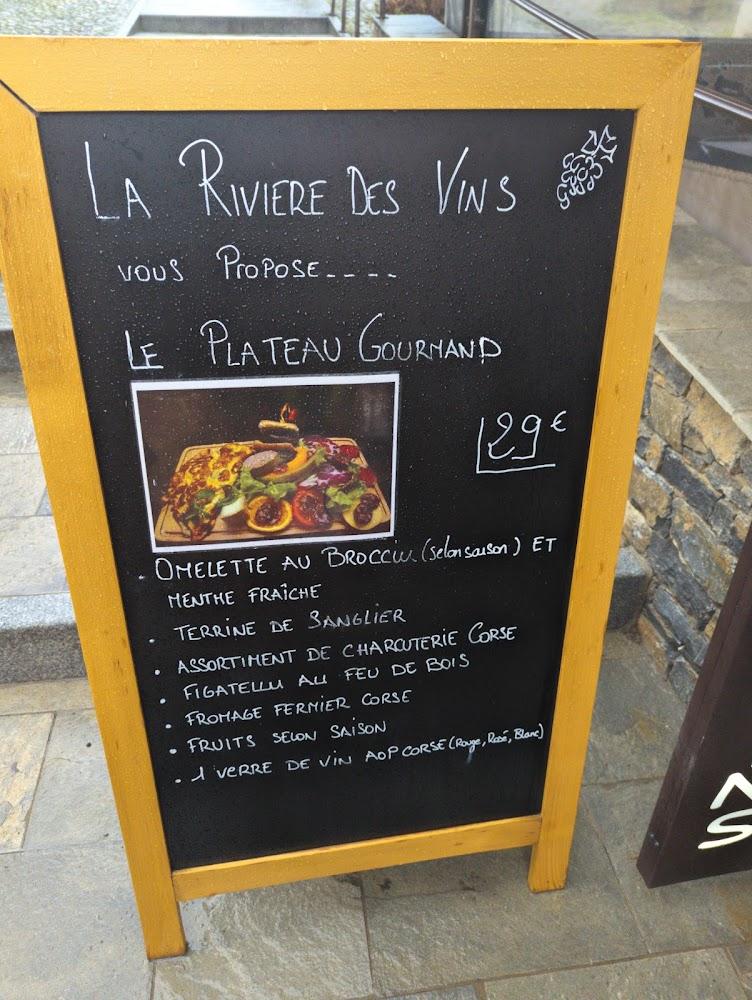 LA RIVIERE DES VINS
VOUS PROPOSE----
LE PLATEAU GOURMAND
29€
. OMELETTE AU BROCCIU (selon saison) ET
MENTHE FRAÎCHE
. TERRINE DE SANGLIER
. ASSORTIMENT DE CHARCUTERIE CORSE
. FIGATELLU AU FEU DE BOIS
. FROMAGE FERMIER CORSE
. FRUITS SELON SAISON
. 1 VERRE DE VIN AOP CORSE (Rouge, Rosé, Blanc)